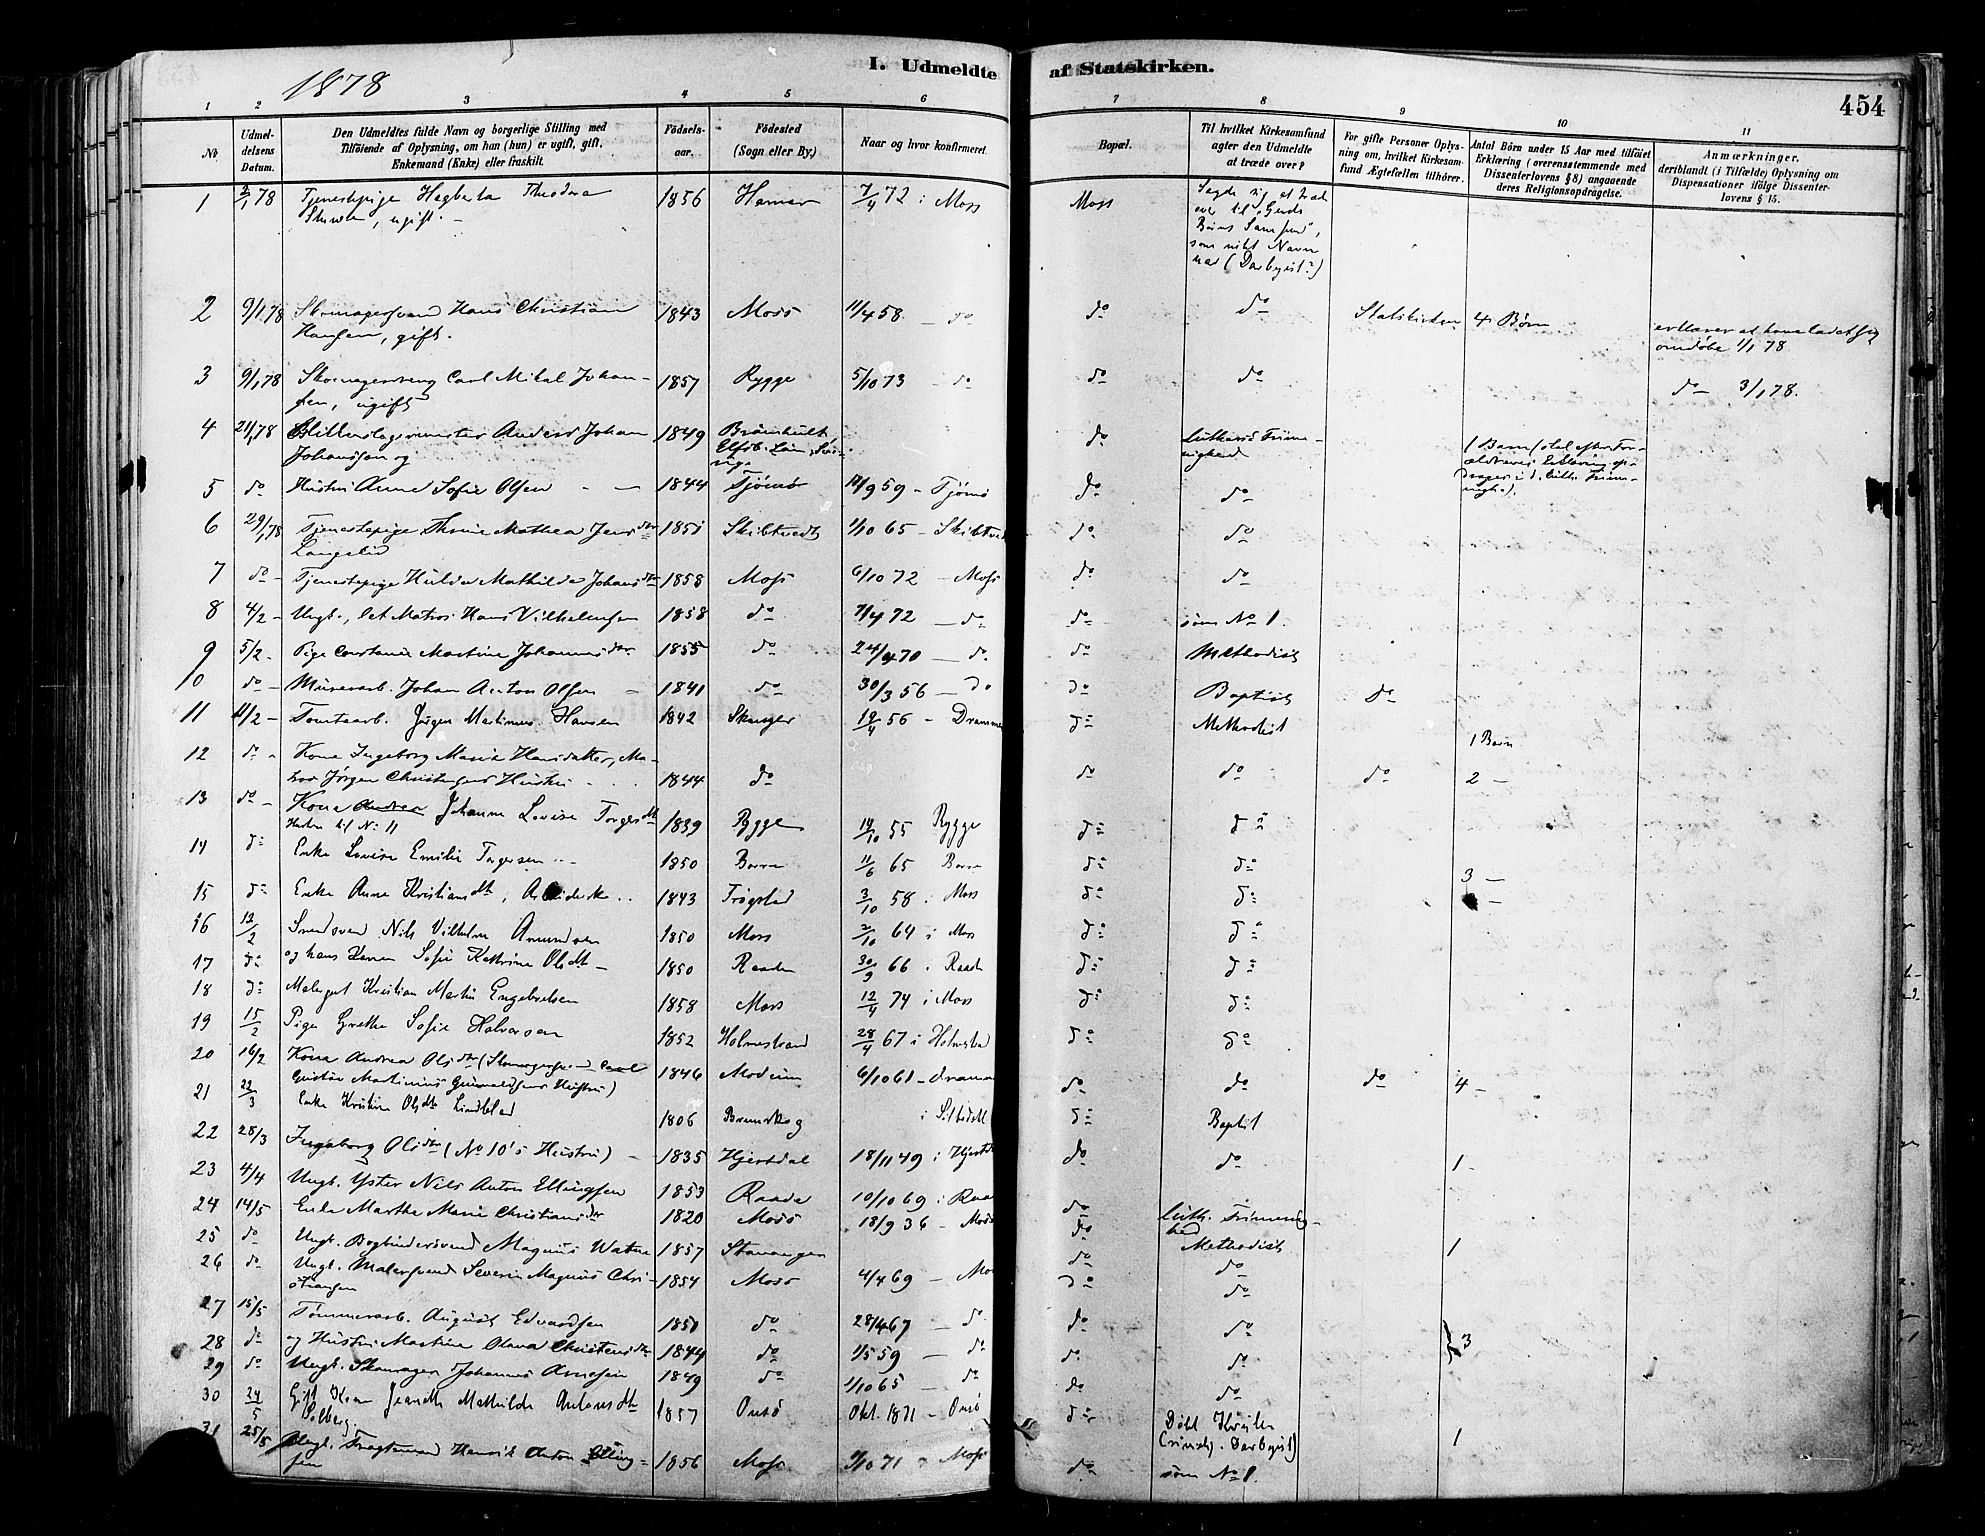 1878
I. Udmeldte af Statskirken.
454
1 2 3 4 5 6 7 8 9 10 11
No.
Udmeldelsens Datum.
Den Udmeldtes fulde Navn og borgerlige Stilling med
Tilføiende af Oplysning, om han (hun) er ugift, gift,
Enkemand (Enke) eller fraskilt.
Fødselsaar.
Fødested
(Sogn eller By.)
Naar og hvor konfirmeret.
Bopæl.
Til hvilket Kirkesamfund
agter den Udmeldte
at træde over?
For gifte Personer Oplysning
om, hvilket Kirkesamfund
Ægtefællen tilhører.
Antal Børn under 15 Aar med tilføiet
Erklæring (overensstemmende med
Dissenterlovens § 8) angaaende
deres Religionsopdragelse.
Anmærkninger,
deriblandt (i Tilfælde) Oplysning om
Dispensationer ifølge Dissenterlovens
§ 15.
1 2/1 78 Tjenestepige Hagberta Theodora 1856 Hamar 7/4 72 i Moss Moss
ugift.
som nikt Navn
har (Darbyist?)
2 9/1 78 Hans Christian 1843 Moss 11/4 58 - do do do Statskirken 4 Børn
Hansen, gift.
omdøbe 1/1 78
3 9/1 78 Carl Mikal Johan- 1857 Rygge 5/10 73 - do do do do - 3/1 78.
sen, ugift
4 21/1 78 Anders Johan 1849 do Luthersk Frime-
Johanssen og nighed
5 do Hustru Anne Sofie Olsen 1844 Tjömö 59 - Tjömö do do
6 29/1 78 Tjenestepige Mathea Jensdtr 1851 Skibtvedt 1/10 65 - Skibtvedt do do
7 do - Tjenestepige Hulda Mathilde Johansdtr 1858 Moss 6/10 72 - Moss do do
8 4/2 - Ungk., Let Matros Hans Vilhelmsen 1858 do 7/4 72 - do do som No 1.
9 5/2 - Pige Constance Martine Johannesdtr 1855 do 24/4 70 - do do Methodist
10 do - Murerarb. Johan Anton Olsen 1841 do 30/3 56 - do do Baptist do
11 11/2 - Tomtearb. Jørgen Martinus Hansen 1842 Skauger 19/4 56 - Drammen do Methodist 1 Barn
12 do - Kone Ingeborg Marie Hansdatter, Ma-
Jørgen Christensens Hustru 1844 do do do do 2 -
13 do - Kone Andrea Johanne Lovise Torgersdtr 1839 Rygge 14/10 55 Rygge do do
Hustru til No 11
14 do Enke Lovise Emilie Torgersen 1850 Borre 11/6 65 Borre do do 3 -
15 do Enke Anne Kristiansdtr, Arbeiderske 1843 Trøgstad 3/10 58 i Moss do do
16 12/2 Smedsvend Nils Vilhelm Amundsen 1850 Moss 2/10 64 i Moss do do
17 do og hans Kone Sofie Kathrine Olsdtr - 1850 Raade 30/9 66 i Raade do do
18 do Malergut Kristian Martin Engebretsen 1858 Moss 12/4 74 i Moss do do
19 15/2 Pige Grethe Sofie Halvorsen 1852 Holmestrand 28/4 67 i Holmestrd do do
20 16/2 Kone Andrea Olsdtr (Skomagersvend Carl
Gustav Martinius Hustru) 1846 Modum 6/10 61 - Dramm do do do 4 -
21 22/3 Enke Kristine Olsdtr Lindblad 1806 i do Baptist
22 28/3 Ingeborg Olsdtr (No 10's Hustru) - 1835 Hjertdal 18/11 49 i Hjertd do do 1 -
23 4/4 Ungk. Nils Anton Ellingsen 1853 Raade 10/10 69 i Raa do Luth. Frimenig-
hed
24 14/5 Enke Marthe Marie Christiansdtr 1820 Moss 18/9 36 - Moss do Methodist 1
25 do Ungk. Bogbindersvend Magnus Watne 1857 Stavanger do do
26 do Ungk. Malersvend Severin Magnus Chri- 1854 Moss 4/4 69 - Mo do do
stiansen
27 15/5 Tømmerarb. August Edvardsen 1851 do 28/4 67 - do do do
28 do og Hustru Martine Olava Christensdtr 1844 do 1/5 59 - do do do } 3
29 do Ungk. Skomager Johannes Arnesen 1849 do 1/10 65 - do do do
30 24/5 Gift Kone Jeanette Mathilde Antonsdtr 1857 Onsø Okt. 1871 - Onsø do
Solberg. Darbyist) 1
31 25/5 Ungk. Henrik Anton Elling- 1856 Moss 1/10 71 Moss do som No 8.
sen